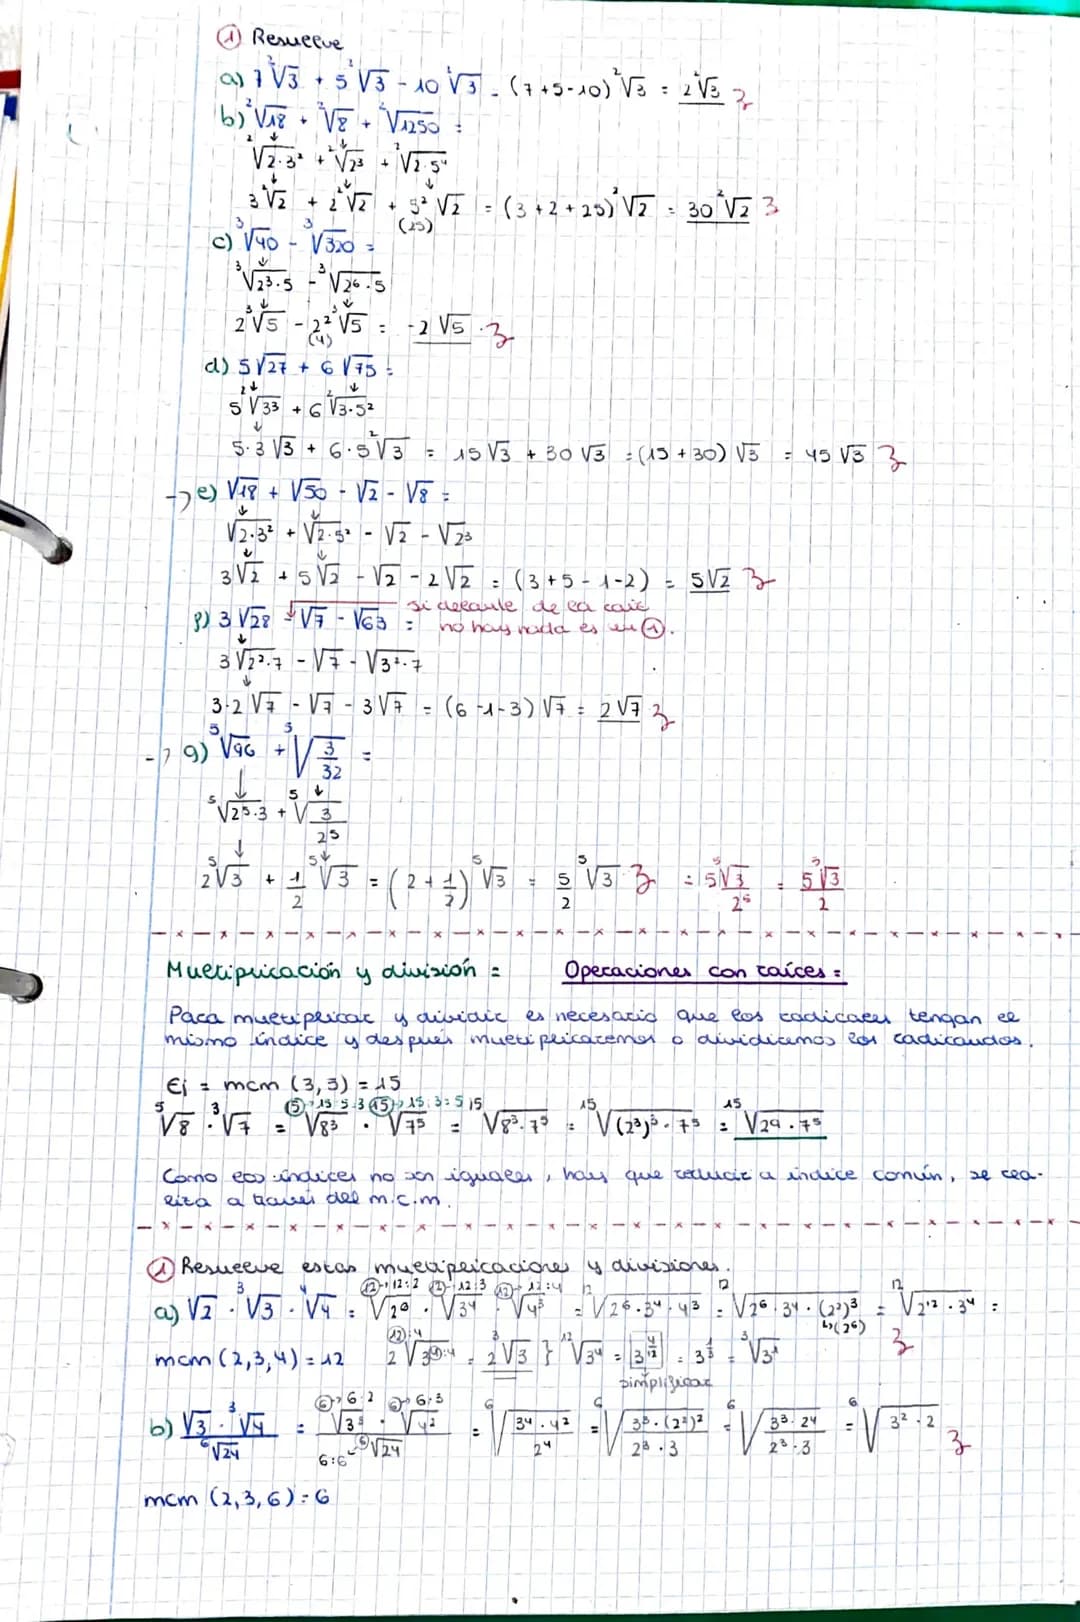 ① Resuelve
a) 7 ²√3 + 5 ²√3 - 10 ²√3 = (7+5-10) ²√3 = 2 ²√3
b) ²√18 + ²√8 + ²√1250 =
²√2·3² + ²√2³ + ²√2·5⁴
3 ²√2 + 2 ²√2 + 5² ²√2 = (3+2+25) ²√2 = 30 ²√2
(25)
c) ³√40 - ³√320 =
³√2³·5 - ³√2⁶·5
2 ³√5 - 2² ³√5 = -2 √5
(4)
d) 5√27 + 6√75 =
5 ²√3³ + 6 ²√3·5²
5·3√3 + 6·5 ²√3 = 15√3 + 30√3 = (15+30)√3 = 45√3
→ e) √18 + √50 - √2 - √8 =
√2·3² + √2·5² - √2 - √2³
3√2 + 5√2 - √2 - 2√2 = (3+5-1-2) = 5√2
si delante de la raíz
f) 3√28 - √7 - √63 = no hay nada es un ①.
3√2²·7 - √7 - √3²·7
3·2√7 - √7 - 3√7 = (6-1-3)√7 = 2√7
→ g) ⁵√96 + ⁵√3/32 =
⁵√2⁵·3 + ⁵√3/2⁵
2 ⁵√3 + 1/2 ⁵√3 = (2 + 1/2) ⁵√3 = 5/2 ⁵√3 = 5 ⁵√3/2⁵ = 5 ⁵√3/2
Multiplicación y división = Operaciones con raíces =
Para multiplicar y dividir es necesario que los radicales tengan el
mismo índice y después multiplicaremos o dividiremos los radicandos.
Ej = mcm (3,3) = 15
⑮→15:5=3 ⑮→15:3=5
⁵√8 · ³√7 = √8³ · √7⁵ = ¹⁵√8³·7⁵ = ¹⁵√(2³)³·7⁵ = ¹⁵√2⁹·7⁵
Como los índices no son iguales, hay que reducir a índice común, se rea-
liza a través del m.c.m.
① Resuelve estas multiplicaciones y divisiones.
⑫→12:2 ⑫→12:3 ⑫→12:4
a) √2 · ³√3 · ⁴√4 = √2⁶ · √3⁴ · √4³ = ¹²√2⁶·3⁴·4³ = ¹²√2⁶·3⁴·(2²)³ = ¹²√2¹²·3⁴ =
↳(2⁶)
mcm (2,3,4) = 12 2 ⑫:4√3④:4 = 2 ³√3 } ¹²√3⁴ = 3^4/12 = 3^1/3 = ³√3¹
simplificar
⑥→6:2 ⑥→6:3
b) √3 · ³√4 / ⁶√24 = √3³ · √4² / ⑥√24 = ⁶√3⁴·4²/2⁴ = ⁶√3³·(2²)²/2³·3 = ⁶√3³·2⁴/2³·3 = ⁶√3²·2
6:6
mcm (2,3,6) = 6